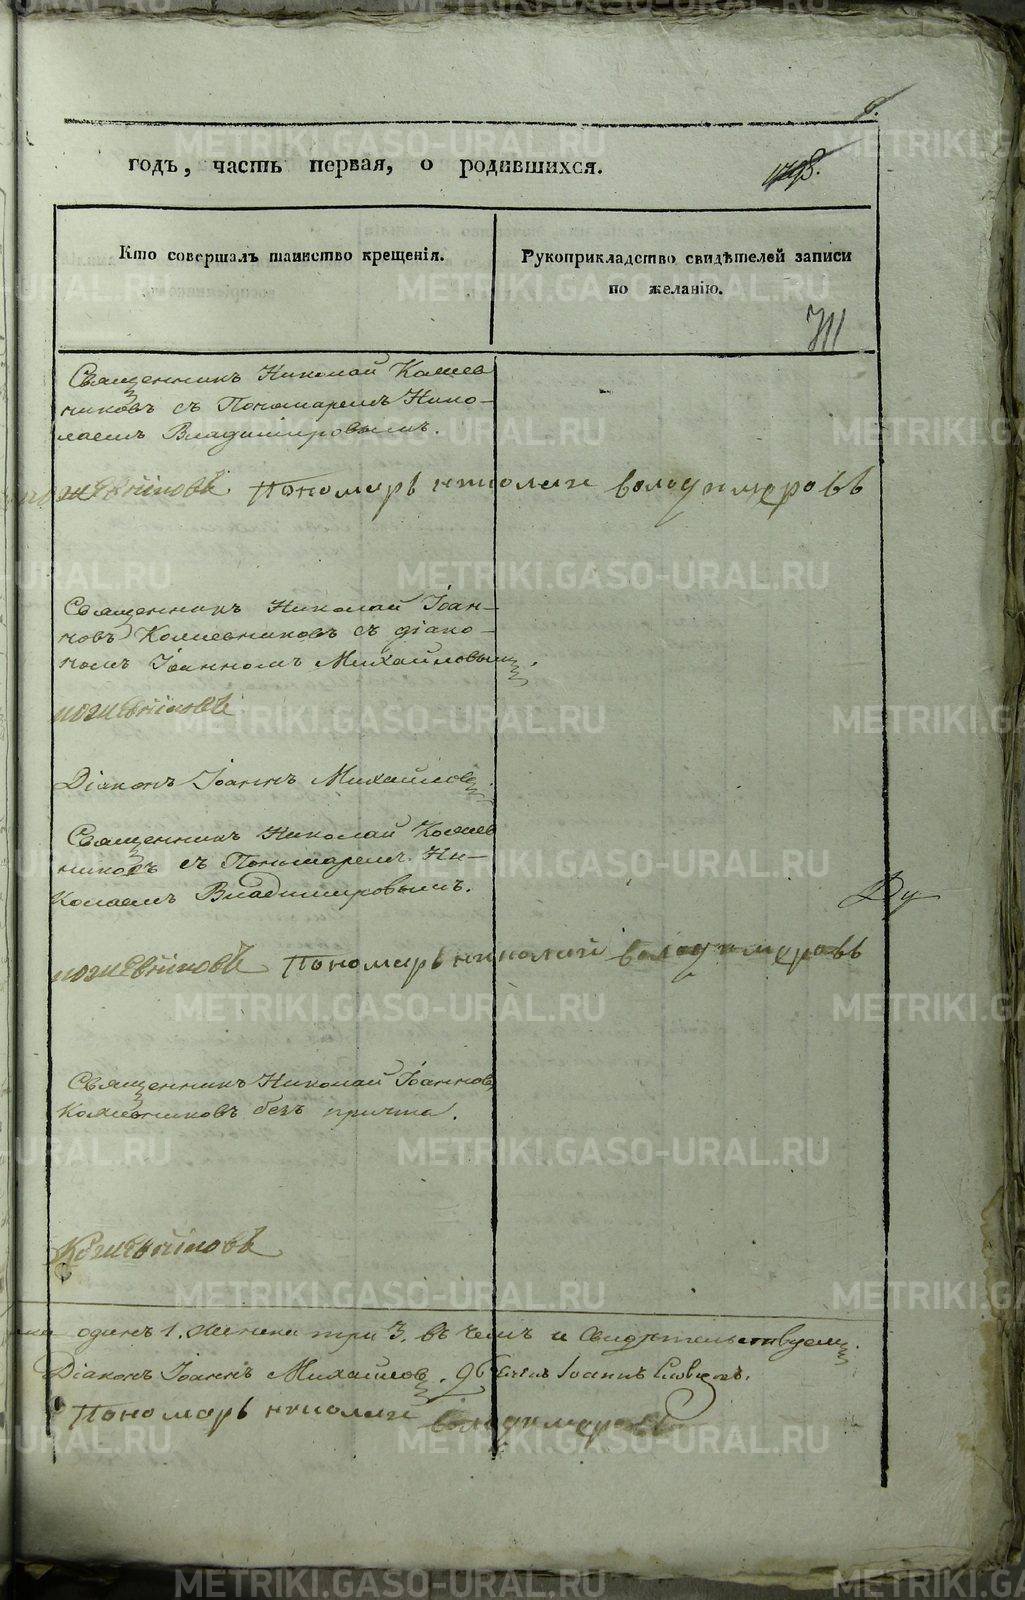 годъ, часть первая, о родившихся.
Кто совершалъ таинство крещенія.
Рукоприкладство свидѣтелей записи
по желанію.
711
Священникъ Николай Кожев
никовъ съ Пономаремъ Нико-
лаемъ Владиміровымъ.
Пономарь николай володимеровъ
Священникъ Николай Іоан-
новъ Кожевниковъ съ діако-
номъ Іоанномъ Михайловымъ.
кожевніковъ
Діаконъ Іоаннъ Михайловъ.
Священникъ Николай Кожев
никовъ съ Пономаремъ Ни-
колаемъ Владиміровымъ.
Ду
кожевніковъ Пономарь николай володимеровъ
Священникъ Николай Іоанновъ
Кожевниковъ безъ причта.
Кожевніковъ
одинъ 1. женска три 3. въ чемъ и свидѣтельствуемъ.
Діаконъ Іоаннъ Михайловъ. Іоаннъ
Пономарь николай володимеровъ
METRIKI.GASO-URAL.RU